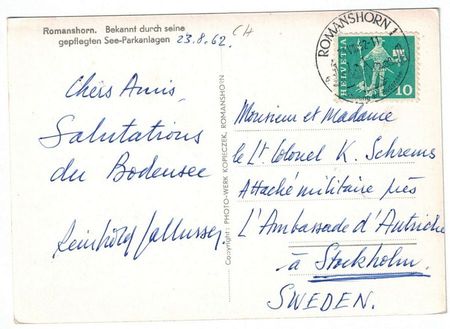 Romanshorn. Bekannt durch seine
gepflegten See-Parkanlagen
23.8.62.
CH
Chers Amis,
Salutations
du Bodensee
Reinhold
Copyright: PHOTO-WERK KOPIECZEK, ROMANSHORN
ROMANSHORN 1
HELVETIA
10
Monsieur et Madame
le Lt. Colonel K. Schrems
Attaché militaire près
L'Ambassade d'Autriche
à Stockholm.
SWEDEN.